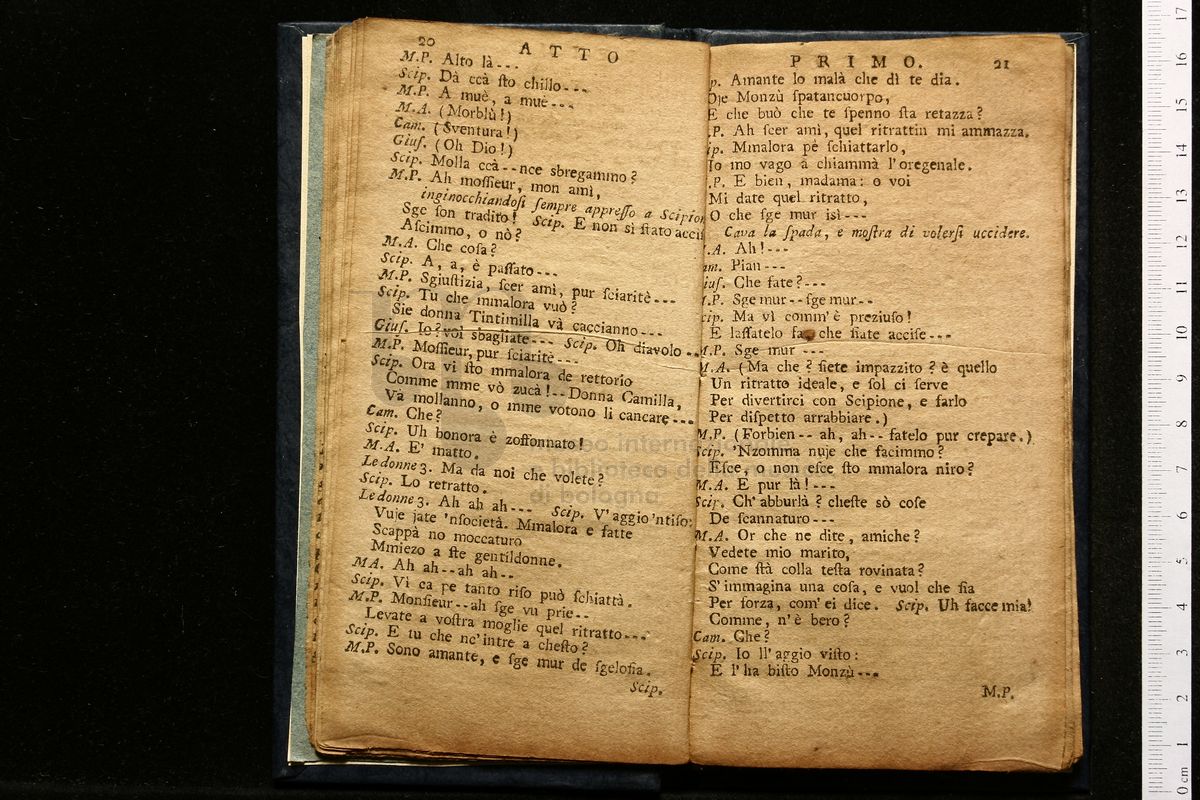 20 ATTO
M.P. Alto là---
Scip. Dà ccà ſto chillo---
M.P. A muè, a muè---
M.A. (Morblù!)
Cam. (Sventura!)
Giuſ. (Oh Dio!)
Scip. Molla ccà--nce sbregammo?
M.P. Ah moſſieur, mon amì,
inginocchiandoſi ſempre appreſſo a Scipion
Sge ſon tradito! Scip. E non sì ſtato acciſ
Aſcimmo, o nò?
M.A. Che coſa?
Scip. A, a, è paſſato---
M.P. Sgiuſtizia, ſcer amì, pur ſciaritè---
Scip. Tu che mmalora vuò?
Sie donna Tintimilla và caccianno---
Giuſ. Io? voi sbagliate--- Scip. Oh diavolo--
M.P. Moſſieur, pur ſciaritè---
Scip. Ora vi ſto mmalora de rettorio
Comme mme vò zucà!--Donna Camilla,
Va mollanno, o mme votono li cancare---
Cam. Che?
Scip. Uh bonora è zoffonnato!
M.A. E' matto.
Le donne 3. Ma da noi che volete?
Scip. Lo retratto.
Le donne 3. Ah ah ah--- Scip. V'aggio 'ntiſo:
Vuje jate 'nſocietà. Mmalora e fatte
Scappà no moccaturo
Mmiezo a ſte gentildonne.
MA. Ah ah--ah ah--
Scip. Vi ca pe tanto riſo può ſchiattà.
M.P. Monſieur--ah ſge vu prie--
Levate a voſtra moglie quel ritratto---
Scip. E tu che nc'intre a cheſto?
M.P. Sono amante, e ſge mur de ſgeloſia.
Scip.
PRIMO. 21
p. Amante lo malà che dì te dia.
Oje Monzù ſpatancuorpo,
E che buò che te ſpenno ſta retazza?
.P. Ah ſcer amì, quel ritrattin mi ammazza.
ip. Mmalora pè ſchiattarlo,
Io mo vago a chiammà l'oregenale.
.P. E bien, madama: o voi
Mi date quel ritratto,
O che ſge mur isì---
Cava la ſpada, e moſtra di volerſi uccidere.
.A. Ah!---
am. Pian---
iuſ. Che fate?---
I.P. Sge mur--ſge mur--
cip. Ma vì comm'è preziuſo!
E laſſatelo fa che ſiate acciſe---
M.P. Sge mur ---
M.A. (Ma che? ſiete impazzito? è quello
Un ritratto ideale, e ſol ci ſerve
Per divertirci con Scipione, e farlo
Per diſpetto arrabbiare.)
M.P. (Forbien-- ah, ah--fatelo pur crepare.)
Scip. 'Nzomma nuje che facimmo?
Eſce, o non eſce ſto mmalora niro?
M.A. E pur là!---
Scip. Ch'abburlà? cheſte sò coſe
De ſcannaturo---
M.A. Or che ne dite, amiche?
Vedete mio marito,
Come ſtà colla teſta rovinata?
S'immagina una coſa, e vuol che ſia
Per forza, com'ei dice. Scip. Uh facce mia!
Comme, n'è bero?
Cam. Che?
Scip. Io ll'aggio viſto:
E l'ha biſto Monzù---
M.P.